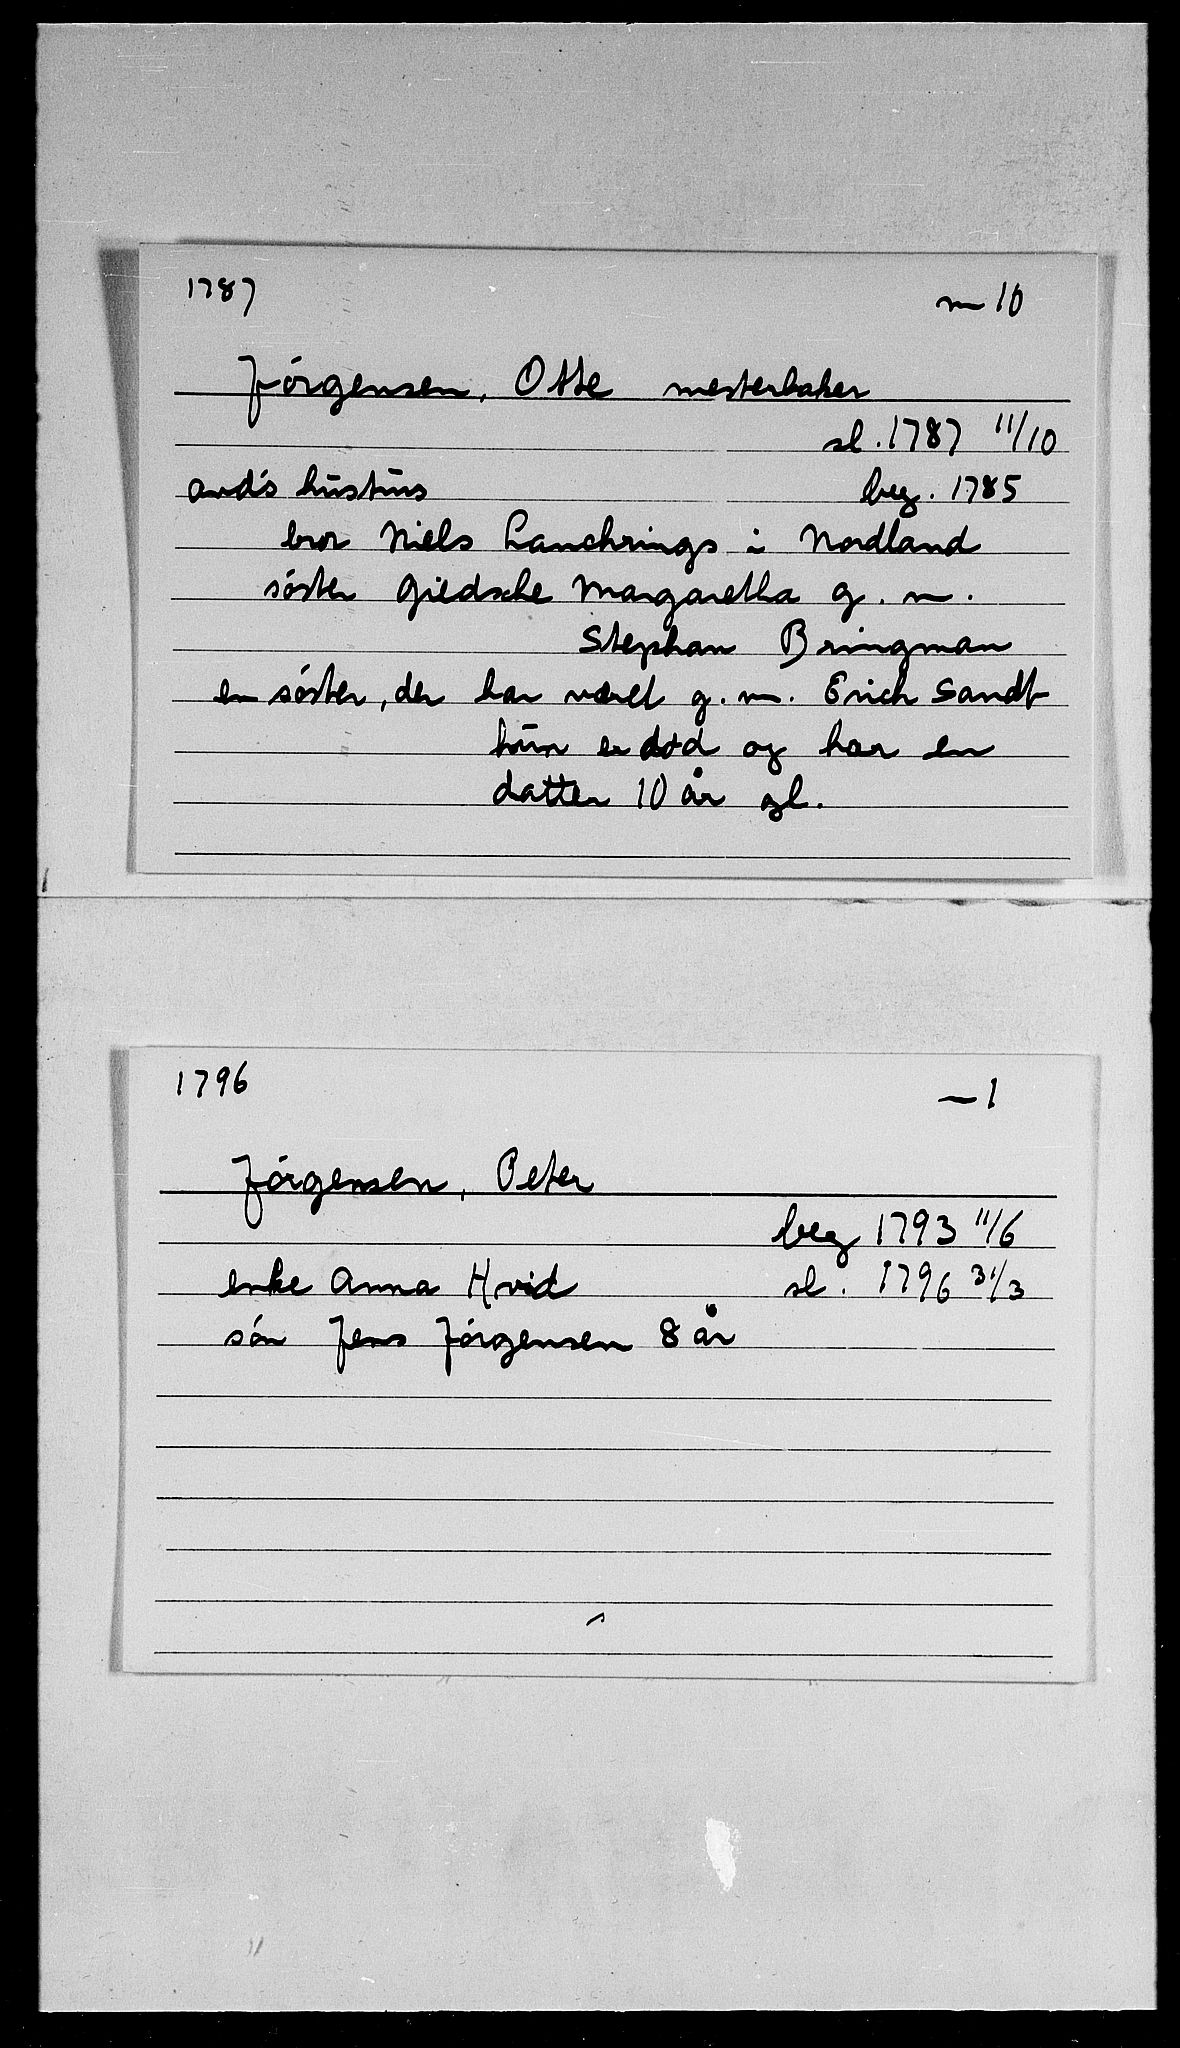 1787 m 10
Jörgensen, Otte mesterbaker
sl. 1787 11/10
avd's hustrus beg. 1785
bror Niels Lanchrings i Nordland
söster Giedsche Margaretha g. m.
Stephan Bringman
en söster, der har været g. m. Erich Sandt
hun er död og har en
datter 10 år gl.
1796 1
Jörgensen, Peter
beg 1793 11/6
enke Anna Hvid sl. 1796 31/3
sön Jens Jörgensen 8 år